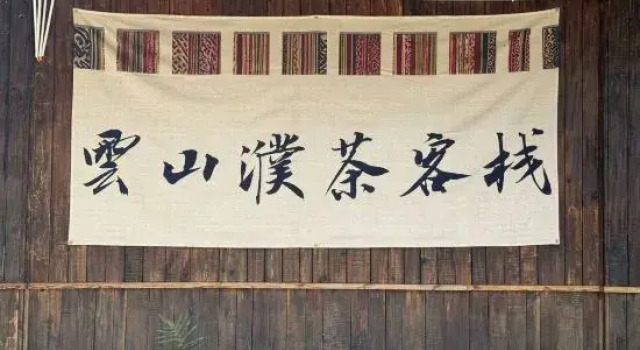 雲山濮茶客栈